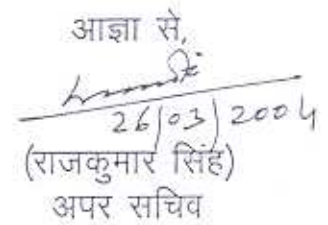 आज्ञा से,
26/03/2004
(राजकुमार सिंह)
अपर सचिव